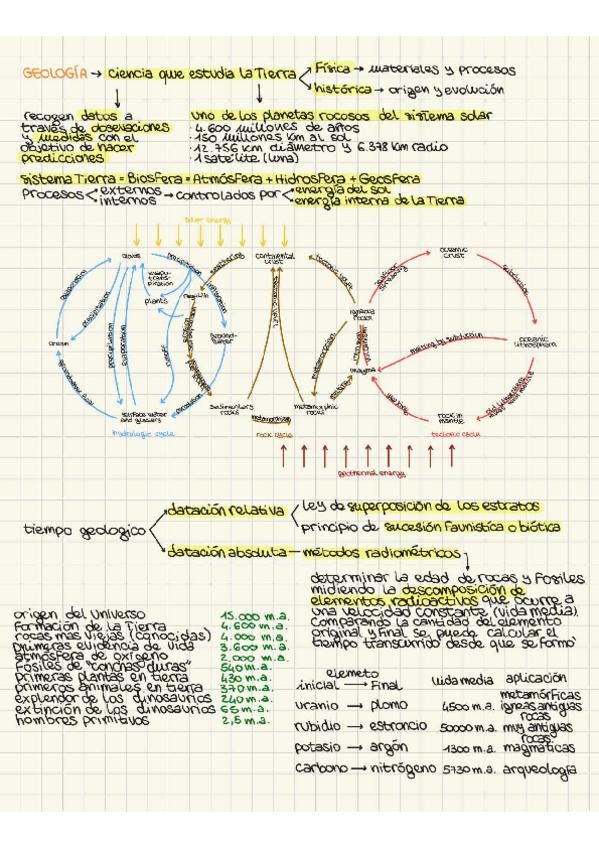 GEOLOGÍA → ciencia que estudia la Tierra
Física → materiales y procesos
histórica → origen y evolución
recogen datos a
través de obsevaciones
y medidas con el
objetivo de hacer
predicciones
uno de los planetas rocosos del sistema solar
· 4.600 millones de años
· 150 millones km al sol
· 12.756 km diámetro y 6.378 km radio
· 1 satélite (luna)
Sistema Tierra = Biosfera = Atmósfera + Hidrosfera + Geosfera
Procesos
externos
internos
→ controlados por
energía del sol
energía interna de la Tierra
solar energy
clouds
continental crust
oceanic crust
evaporation
precipitation
plants
weathering
subduction
igneous rocks
ocean
magma
melting by subduction
oceanic lithosphere
surface water and glaciers
sedimentary rocks
metamorphism
metamorphic rocks
melting
rock in mantle
hydrologic cycle
rock cycle
tectonic cycle
geothermal energy
tiempo geologico
datación relativa
ley de superposición de los estratos
principio de sucesión faunistica o biótica
datación absoluta — métodos radiométricos
determinar la edad de rocas y fosiles
midiendo la descomposición de
elementos radioactivos que ocurre a
una velocidad constante (vida media).
comparando la cantidad del elemento
original y final se puede calcular el
tiempo transcurrido desde que se formó
origen del universo 15.000 m.a.
Formación de la Tierra 4.600 m.a.
rocas mas viejas (conocidas) 4.000 m.a.
primeras evidencia de vida 3.600 m.a.
atmósfera de oxígeno 2.000 m.a.
Fósiles de "conchas duras" 540 m.a.
primeras plantas en tierra 430 m.a.
primeros animales en tierra 370 m.a.
explendor de los dinosaurios 240 m.a.
extinción de los dinosaurios 65 m.a.
hombres primitivos 2,5 m.a.
elemeto
inicial → Final vida media aplicación
uranio → plomo 4500 m.a. metamórficas igneas antiguas
rubidio → estroncio 50000 m.a. rocas muy antiguas
potasio → argón 1300 m.a. rocas magmáticas
carbono → nitrógeno 5730 m.a. arqueología